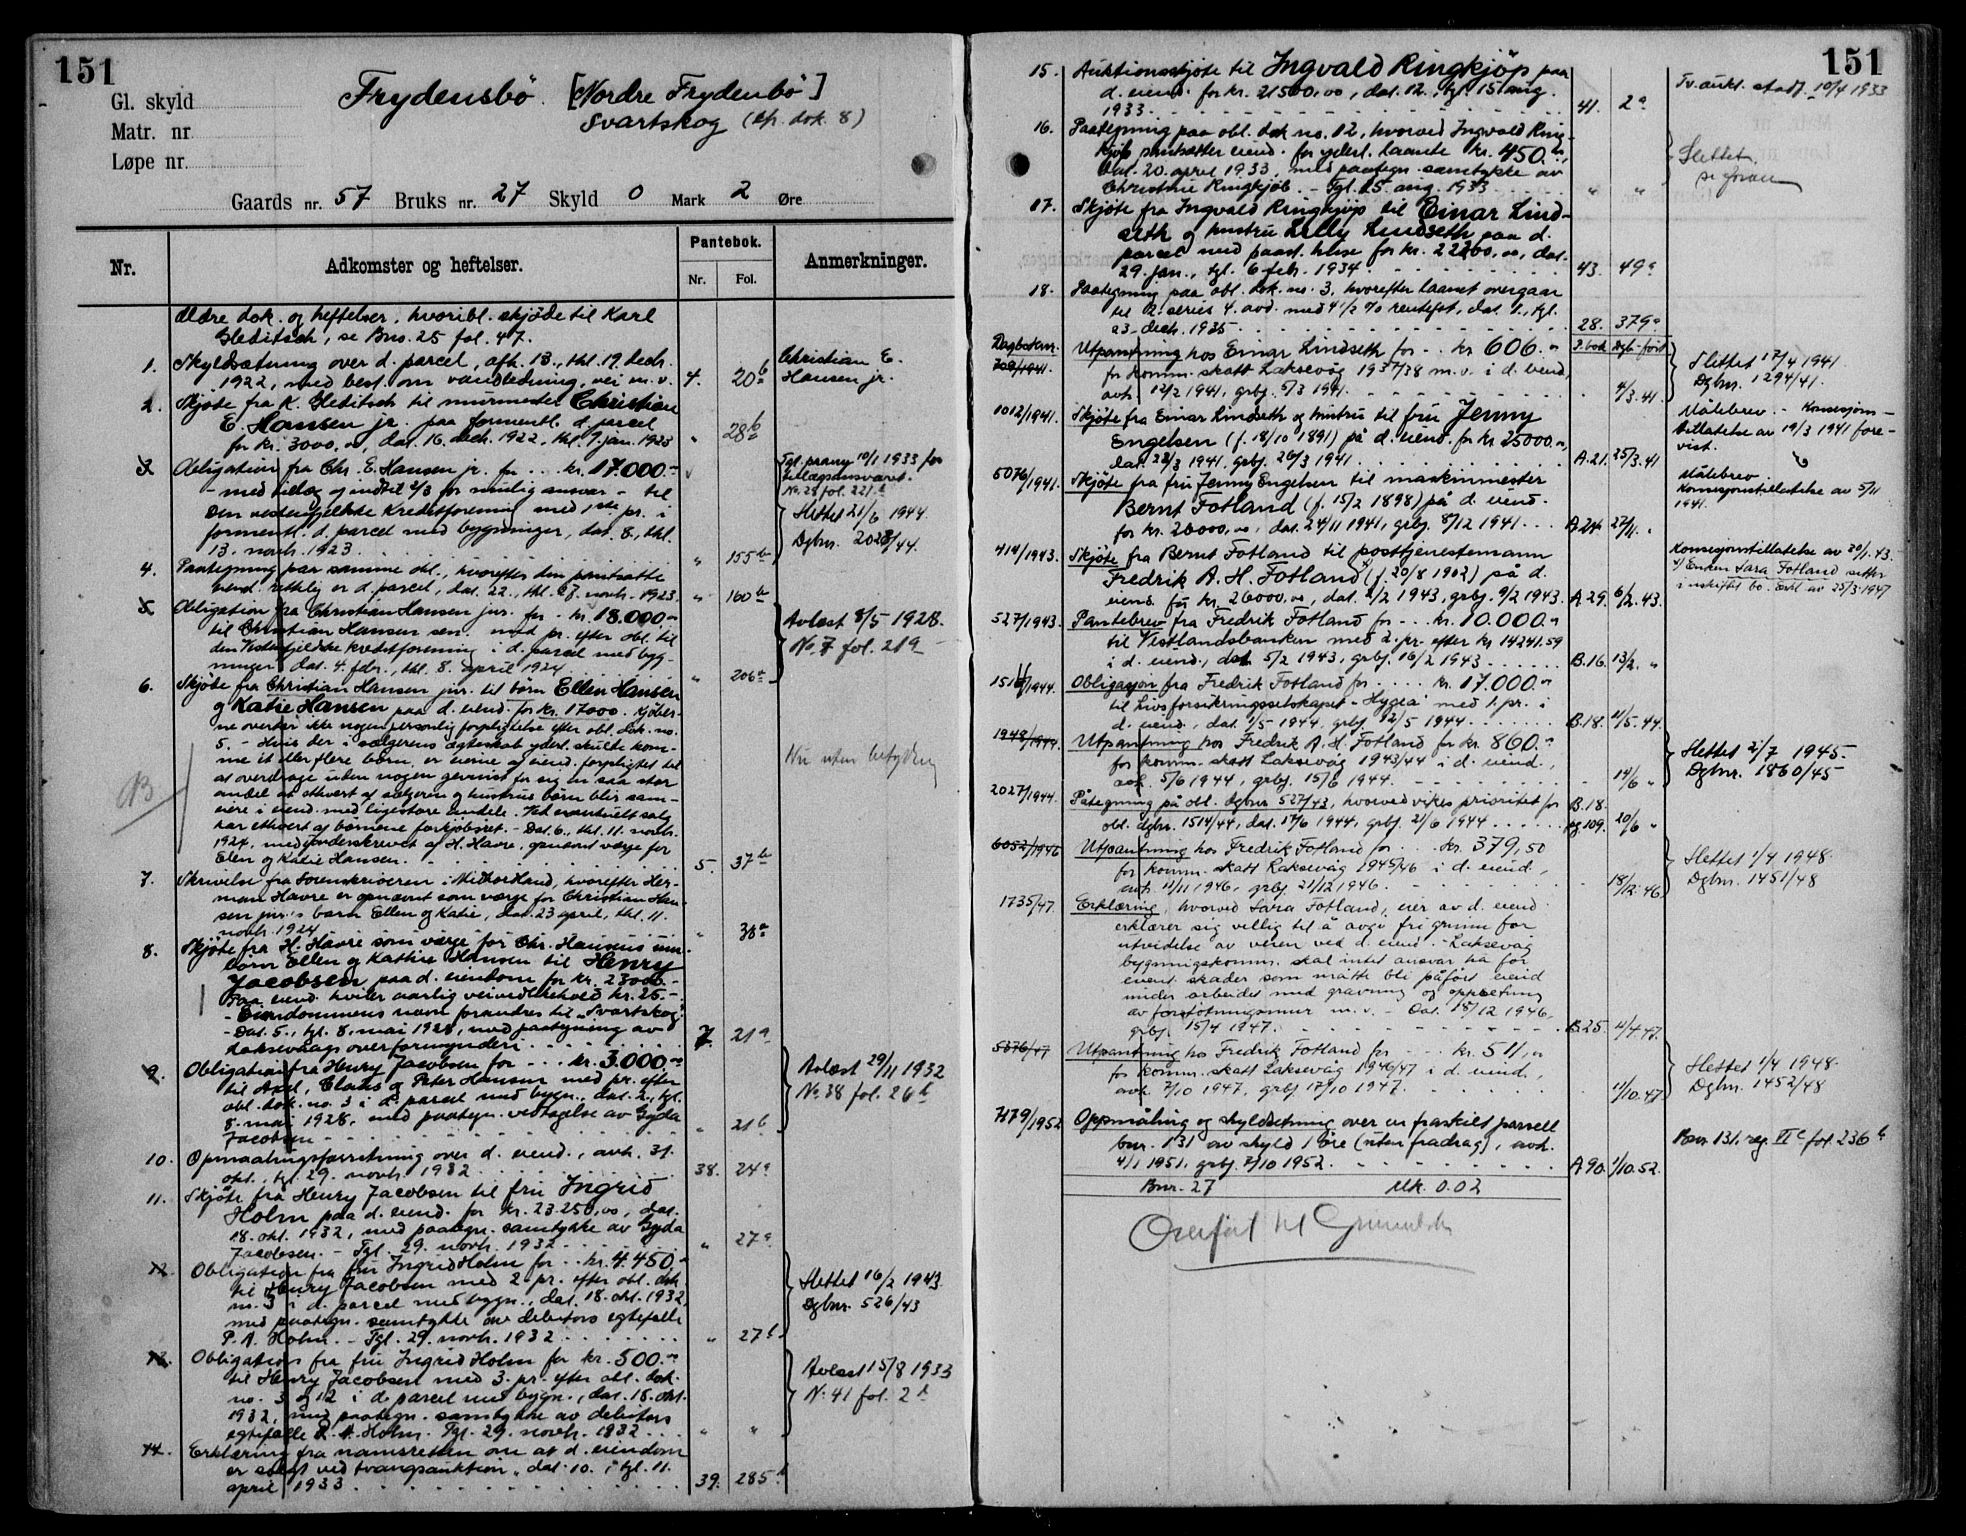 151
Gl. skyld
Matr. nr.
Løpe nr.
Frydensbö. [Nordre Frydenbö]
Svartskog (cfr. dok. 8)
Gaards nr. 57 Bruks nr. 27 Skyld 0 Mark 2 Øre
Nr. Adkomster og heftelser. Pantebok. Nr. Fol. Anmerkninger.
Ældre dok. og heftelser, hvoribl. skjøde til Karl
Gleditsch, se Bno. 25 fol. 47.
1. Skyldsætning over d. parcel, afh. 13., thl. 19. decb. Christian E.
1922, med best. om vandledning, vei m. v. 4. 20b Hansen jr.
2. Skjøte fra K. Gleditsch til murmester Christian
E. Hansen jr. paa formentl. d. parcel
for kr. 3000,00, dat. 16. decb. 1922, thl. 9. jan. 1923 " 28b
3. Obligation fra Chr. E. Hansen jr. for ... kr. 17.000.-
- med tillæg og indtil 2/3 for mulig ansvar - til
Den vestenfjeldske Kreditforening med 1ste pr. i
formentl. d. parcel med bygninger, dat. 8., thl.
13. novb. 1923 " 155b
Tgl. 10/1 1933 for
tillægsansvaret.
No. 28 fol. 221
Slettet 21/6 1944.
Dgbnr. 2028/44.
4. Paategning paa samme obl., hvorefter den pantsatte
eiend. rettelig er d. parcel, dat. 22., thl. 27. novb. 1923. " 160b
5. Obligation fra Christian Hansen jnr. for .. kr. 18.000.-
til Christian Hansen sen. med pr. efter obl. til
den Vestenfjeldske Kreditforening i d. parcel med byg-
ninger, dat. 4. febr., thl. 8. april 1924 " 206a
Avlæst 8/5 - 1928.
No. 7 fol. 219
6. Skjøte fra Christian Hansen jnr. til børn Ellen Hansen
og Katie Hansen paa d. eiend. for kr. 17000. Kjøber-
ne overtar ikke nogen personlig forpligtelse efter obl. dok. no.
5. - Hvis der i sælgerens ægteskab yderl. skulde kom-
me et eller flere børn, er eierne af eiend. forpligtet til
at overdrage uten nogen gevinst for sig en saa stor
andel at ethvert af sælgeren og hustrus børn blir sam-
eiere i eiend. med ligestore andele. Ved eventuelt salg
har ethvert af børnene forkjøbsret. - Dat. 6., thl. 11. novb.
1924, medunderskrevet af H. Havre, opnævnt værge for
Ellen og Katie Hansen. 5. 37b
Nu uten betydning
NB
7. Skrivelse fra Sorenskriveren i Midhordland, hvorefter Her-
man Havre er opnævnt som værge for Christian Han-
sen jnr.s barn Ellen og Katie, dat. 23 april, thl. 11.
novb. 1924 " 38a
8. Skjøte fra H. Havre som værge for Chr. Hansens um.
børn Ellen og Kathie Hansen til Henry
Jacobsen paa d. eiendom for kr. 23000.-
- Paa eiend. hviler aarlig veivedlikehold kr. 25.-
- Eiendommens navn forandres til "Svartskog".
- Dat. 5., tgl. 8. mai 1928, med paategning av
Laksevaags overformynderi 7. 21a
9. Obligation fra Henry Jacobsen for ... kr. 3.000.-
til Axel, Claus og Peter Hansen med pr. efter
obl. dok. no. 3 i d. parcel med bygn., dat. 2., tgl.
8. mai 1928, med paategn. vedtagelse av Gyda
Jacobsen " 21b
Avlæst 29/11 1932
No. 38 fol. 26b
10. Opmaalingsforretning over d. eiend., avh. 31.
okt., tgl. 29. novb. 1932 38. 24a
11. Skjøte fra Henry Jacobsen til fru Ingrid
Holm paa d. eiend. for kr. 23.250,00, dat.
18. okt. 1932, med paategn. samtykke av Gyda
Jacobsen. - Tgl. 29. novb. 1932 " 27a
12. Obligation fra fru Ingrid Holm for .. kr. 4.450,-
til Henry Jacobsen med 2. pr. efter obl. dok.
no. 3 i d. parcel med bygn., dat. 18. okt. 1932,
med paategn. samtykke av debitors egtefelle
P. A. Holm. - Tgl. 29. novb. 1932 " 27b
Slettet 16/2 1943
Dgbnr. 526/43
13. Obligation fra fru Ingrid Holm for kr. 500.-
til Henry Jacobsen med 3. pr. efter obl. dok.
no. 3 og 12 i d. parcel med bygn., dat. 18. okt.
1932, med paategn. samtykke av debitors
egtefelle P. A. Holm. Tgl. 29. novb. 1932 " "
Avlæst 15/8 1933
No. 41 fol. 2b
14. Erklæring fra namsretten om at d. eiendom
er solgt ved tvangsauktion, dat. 10., tgl. 11.
april 1933 39. 285b
151
15. Auktionsskjøte til Ingvald Ringkjøp paa
d. eiend. for kr. 21500,00, dat. 12., tgl. 15 aug.
1933 41. 2a
Tv. aukt. stadf. 10/4 1933
16. Paategning paa obl. dok. no. 12, hvorved Ingvald Ring-
kjøp pantsætter eiend. for yderl. laante kr. 450.-,
dat. 20. april 1933, med paategn. samtykke av
Christine Ringkjøb. - Tgl. 15 aug. 1933 " "
Slettet,
se foran
17. Skjøte fra Ingvald Ringkjøp til Einar Lind-
seth og hustru Lilly Lindseth paa d.
parcel med paast. huse for kr. 22200,00, dat.
29. jan., tgl. 6 feb. 1934 43. 49a
18. Paategning paa obl. dok. no. 3, hvorefter laanet overgaar
til 12. series 4. avd. med 4 1/2 % rentefot, dat. 9., tgl.
23. decb. 1935 28. 379a
Dagboknr. 709/1941. Utpantning hos Einar Lindseth for .. kr 606.- P.bok Dgb.-ført
for komm. skatt Laksevåg 1937/38 m. v. i d. eiend,
avh. 12/2 1941, grbj. 5/3 1941. 4/3.41.
Slettet 17/4 1941.
Dgbnr. 1294/41.
1012/1941. Skjøte fra Einar Lindseth og hustru til fru Jenny
Engelsen (f. 18/10 1891) på d. eiend. for kr 25000.-,
dat. 22/3 1941, grbj. 26/3 1941. A.21. 25/3.41
Målebrev. - Konsesjons-
tillatelse av 19/3 1941 fore-
vist.
5076/1941. Skjøte fra fru Jenny Engelsen til maskinmester
Bernt Fotland (f. 15/2 1898) på d. eiend.
for kr. 26000,00, dat. 24/11 1941, grbj. 8/12 1941 A.24. 27/11. "
Målebrev.
Konsesjonstillatelse av 5/11
1941.
414/1943. Skjøte fra Bernt Fotland til posttjenestemann
Fredrik A. H. Fotland x) (f. 20/8 1902) på d.
eiend. for kr. 26000.00, dat. 2/2 1943, grbj. 9/2 1943. A.29. 6/2.43.
Konsesjonstillatelse av 20/1.43.
x) Enken Sara Fotland sitter
i uskiftet bo. Erkl. av 25/3 1947
527/1943. Pantebrev fra Fredrik Fotland for ... kr. 10.000.-
til Vestlandsbanken med 2. pr. efter kr 14241.59
i d. eiend., dat. 5/2 1943, grbj. 16/2 1943 B.16. 13/2. "
1514/1944. Obligasjon fra Fredrik Fotland for .... kr. 17.000.-
til Livsforsikringsselskapet "Hygea" med 1. pr. i
d. eiend., dat. 1/5 1944, grbj. 12/5 1944 B.18. 11/5.44.
1948/1944. Utpantning hos Fredrik A. H. Fotland for kr. 860.-
for komm. skatt Laksevåg 1943/44 i d. eiend.,
avh. 5/6 1944, grbj. 15/6 1944. 14/6 "
Slettet 2/7 1945.
Dgbnr. 1860/45
2027/1944. Påtegning på obl. dgbnr. 527/43, hvorved vikes prioritet for B.18.
obl. dgbnr. 1514/44, dat. 17/6 1944, grbj. 21/6 1944 pg 109. 20/6 "
6052/1946 Utpantning hos Fredrik Fotland for .... kr. 379,50
for komm. skatt Laksevåg 1945/46 i d. eiend.,
avh. 11/11 1946, grbj. 21/12 1946. 18/12.46
Slettet 1/4 1948.
Dgbnr. 1451/48
1735/47. Erklæring, hvorved Sara Fotland, eier av d. eiend.
erklærer sig villig til å avgi fri grunn for
utvidelse av veien ved d. eiend. - Laksevåg
bygningskomm. skal intet ansvar ha for
event. skader som måtte bli påført eiend
under arbeidet med gravning og oppsetning
av forstøtningsmur m. v. - Dat. 18/12 1946,
grbj. 15/4 1947. B.25. 11/4.47.
5376/47 Utpantning hos Fredrik Fotland for ... kr. 511,00
for komm. skatt Laksevåg 1946/47 i d. eiend.,
avh. 7/10 1947, grbj 17/10 1947. 11/10.47
Slettet 1/4 1948.
Dgbnr. 1452/48
7179/1952 Oppmåling og skyldsetning over en fraskilt parsell
bnr. 131 av skyld 1 øre (uten fradrag), avh.
4/1 1951, grbj. 7/10 1952. A 90. 1/10.52.
Bnr. 131, reg. IIc fol. 236b
Bnr. 27 Mk. 0.02
Overført til